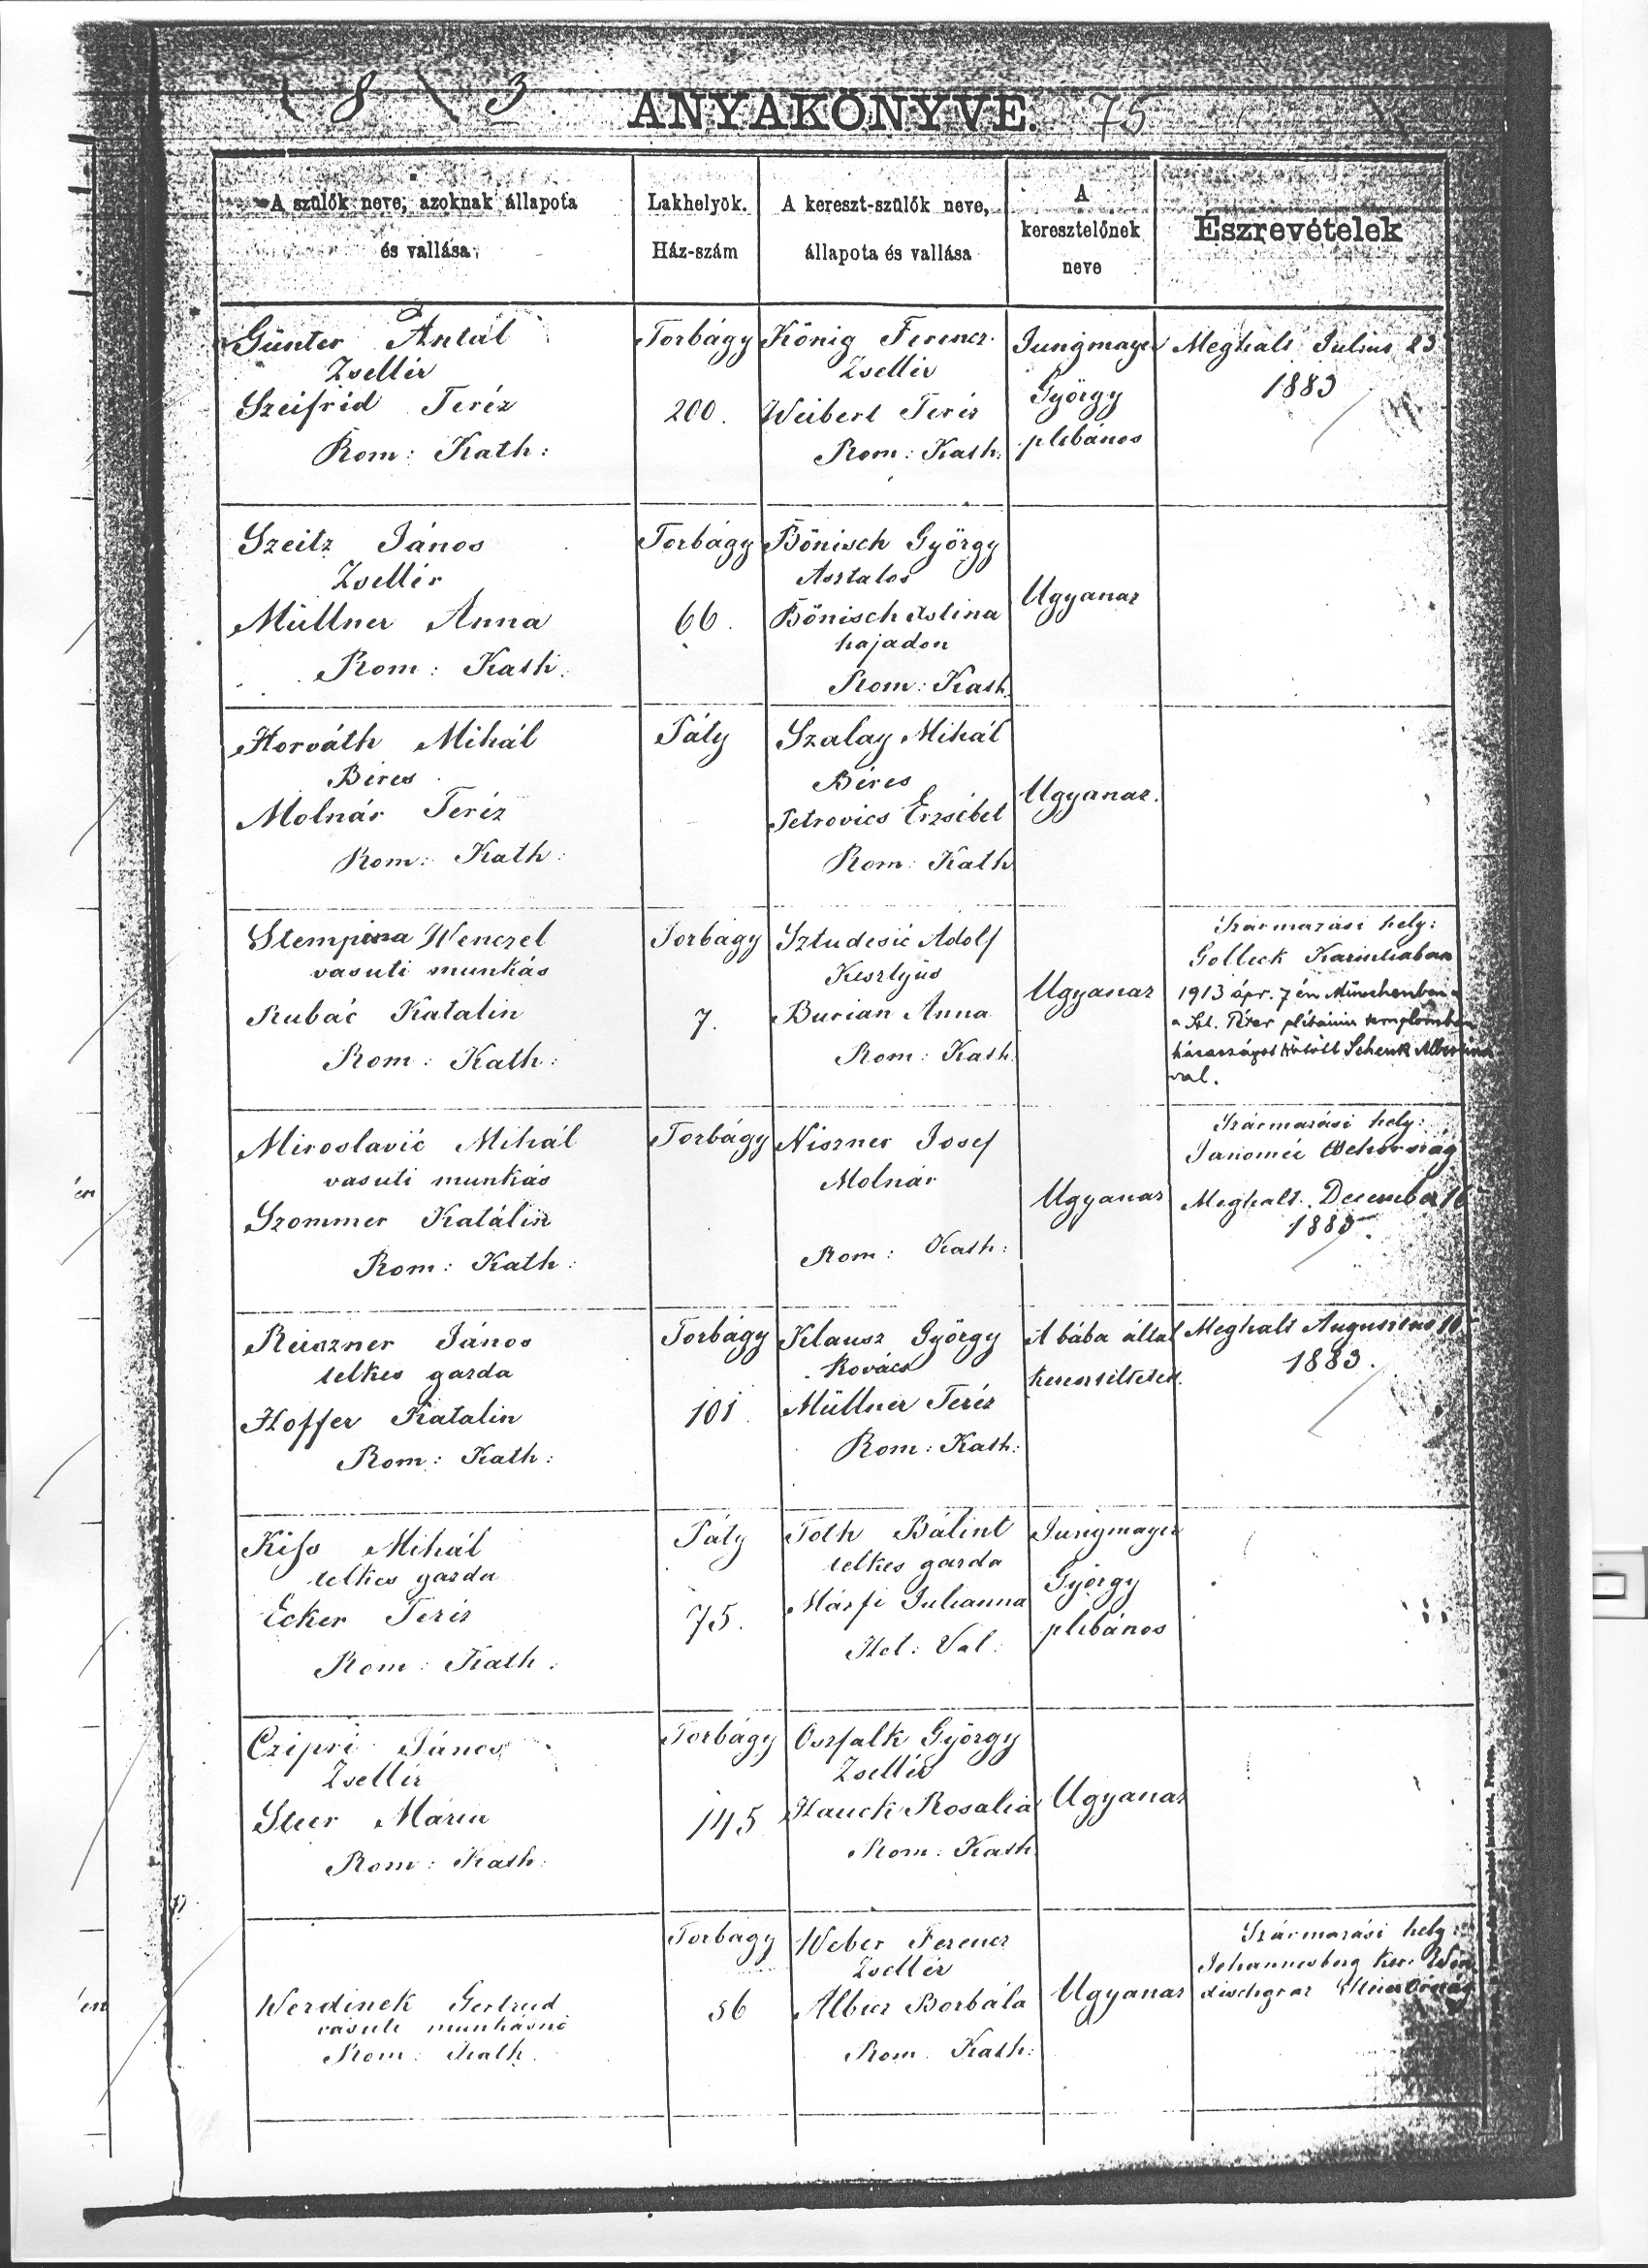 1 8 \ 3 ANYAKÖNYVE. 75
A szülők neve, azoknak állapota
és vallása
Lakhelyök.
Ház-szám
A kereszt-szülők neve,
állapota és vallása
A
keresztelőnek
neve
Észrevételek
Günter Antál
Zsellér
Szeifrid Teréz
Rom: Kath:
Torbágy
200.
König Ferencz
Zsellér
Weibert Teréz
Rom: Kath:
Jungmayer
György
plébános
Meghalt Julius 23
1883
Szeitz János
Zsellér
Müllner Anna
Rom: Kath:
Torbágy
66.
Bönisch György
Asztalos
Bönisch
hajadon
Rom: Kath
Ugyanaz
Horváth Mihál
Béres
Molnár Teréz
Rom: Kath:
Páty
Szalay Mihál
Béres
Petrovics Erzsébet
Rom: Kath
Ugyanaz.
Stempina Wenczel
vasuti munkás
Rubač Katalin
Rom: Kath:
Torbágy
7.
Sztudesič Adolf
Kesztyüs
Burian Anna
Rom: Kath.
Ugyanaz
Származási hely:
Golleck
1913 ápr. 7 én Münchenben
a Szt. Péter plébániai templomban
házasságot kötött Schenk
val.
Miroslavič Mihál
vasuti munkás
Szommer Katálin
Rom: Kath:
Torbágy
Niszner Josef
Molnár
Rom: Kath:
Ugyanaz
Származási hely:
Csehország
Meghalt December 16
1883.
Reiszner János
telkes gazda
Hoffer Katalin
Rom: Kath:
Torbágy
101.
Klausz György
Kovács
Müllner Teréz
Rom: Kath:
A bába által
Meghalt Augusztus 10
1883.
Kiss Mihál
telkes gazda
Ecker Teréz
Rom: Kath:
Páty
75.
Toth Bálint
telkes gazda
Márfi Julianna
Hel: Val:
Jungmayer
György
plébános
Czipri János
Zsellér
Steer Mária
Rom: Kath:
Torbágy
145
Oszfalk György
Zsellér
Hauck Rosalia
Rom: Kath
Ugyanaz
Werdinek Gertrud
vasuti munkásnő
Rom: Kath.
Torbágy
56
Weber Ferencz
Zsellér
Albier Borbála
Rom. Kath:
Ugyanaz
Származási hely:
Johannesberg ker. Win
dischgraz